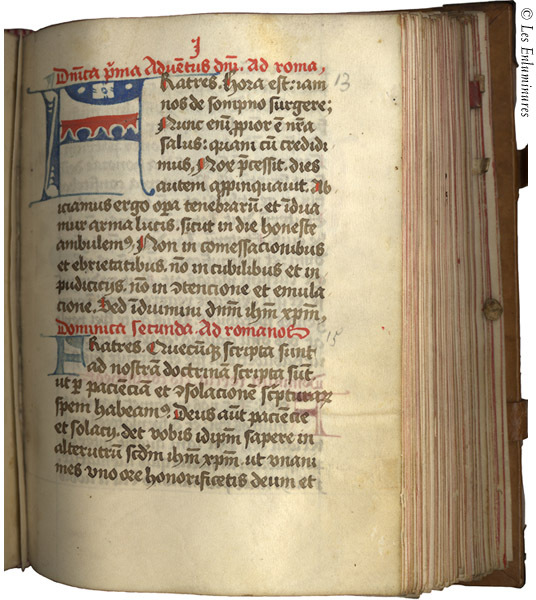 I
Dn̄ica p̄ma Aduent̄us dn̄i. Ad roma,
Fratres. Hora est: iam 13
nos de sompno surgere;
Nunc eni͂ ꝓpior ē nr̄a
salus: quam cū credidi
mus, Nox p̄cessit. dies
autem appinquauit. Ab
iciamus ergo opa tenebrarū. et īdua
mur arma lucis. sicut in die honeste
ambulem9. Non in comessacionibus
et ebrietatibus. nō in cubilibus et in
pudicicijs. nō in ɔtencione et emula
cione. Sed īduimini dnm̄ ihm̄ xpm̄,
Dominica secunda. Ad romanos 15
Fratres. Quecūqꝫ scripta sunt
ad nostrā doctrinā scripta sūt
ut ꝑ pacienciam et ɔsolacionem sc̄pturaꝝ
spem habeam9. Deus aūt paciencie
et solacij. det vobis idipm̄ sapere in
alterutrum scdm̄ ihm̄ xpm̄. ut vnani
mes vno ore honorificetis deum et
© Les Enluminures